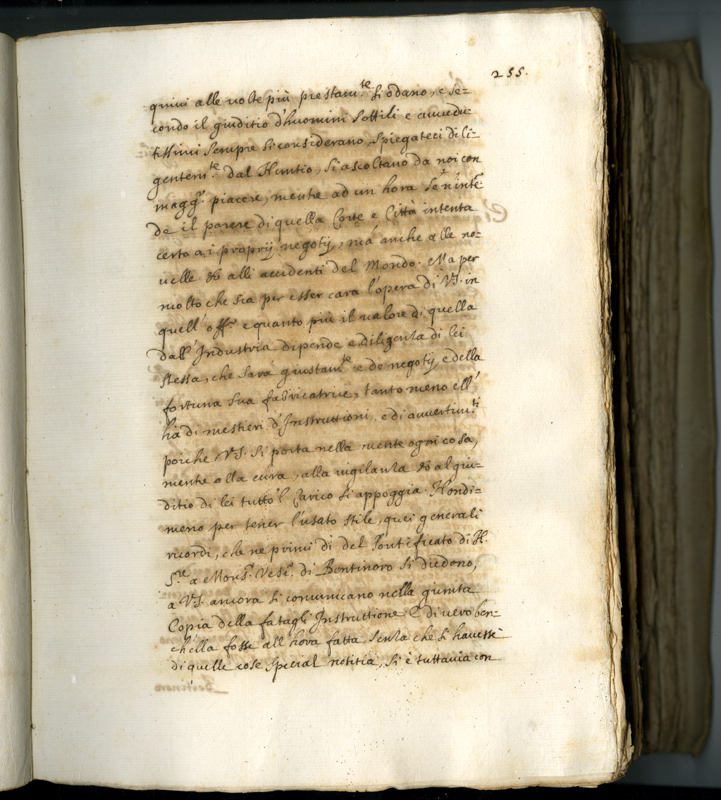 255.
quivi alle volte più prestam.te si odano, e se-
condo il giuditio d'huomini sottili e avvedu-
tissimi sempre si considerano, spiegateci dili-
gentem.te dal Nuntio, si ascoltano da noi con
magg.r piacere, mentre ad un hora se n'inte-
de il parere di quella Corte e Città intenta
certo a i proprij negotij, mà anche alle no-
velle et alli accidenti del Mondo. Ma per
molto che sia per esser cara l'opera di V.S. in
quell' off.o e quanto più il valore di quella
dall' Industria dipende e diligenza di lei
stessa, che sarà giustam.te e de negotij e della
fortuna sua fabricatrice, tanto meno ell'
hà di mestieri d'Instruttioni, e di avvertim.ti
poiche V.S. si porta nella mente ogni cosa,
mentre alla cura, alla vigilanza et al giu-
ditio di lei tutto'l Carico si appoggia. Nondi-
meno per tener l'usato stile, quei generali
ricordi, che ne primi dì del Pontificato di N.
S.re a Mons.r Vesc.o di Bertinoro si diedono,
a V.S. ancora si comunicano nella giunta
Copia della fatagli Instruttione. E di vero ben-
chella fosse all' hora fatta senza che si havesse
di quelle cose special notitia, si è tuttavia con